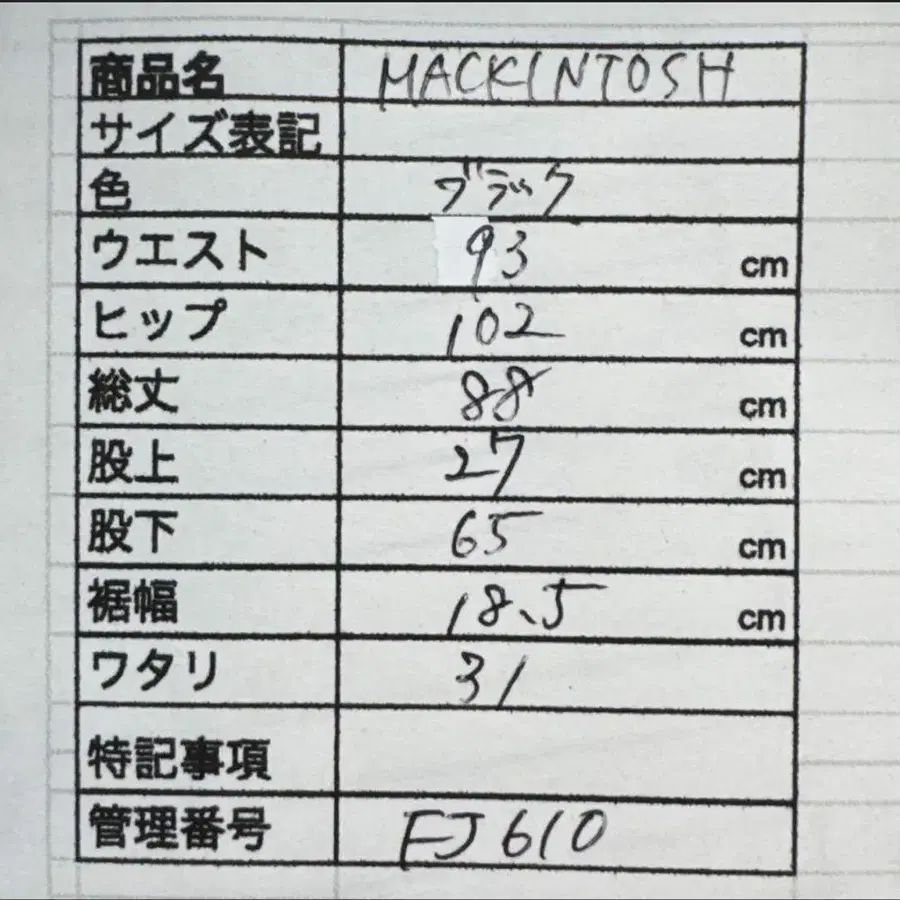 商品名 MACKINTOSH
サイズ表記
色 ブラック
ウエスト 93 cm
ヒップ 102 cm
総丈 88 cm
股上 27 cm
股下 65 cm
裾幅 18.5 cm
ワタリ 31
特記事項
管理番号 FJ610